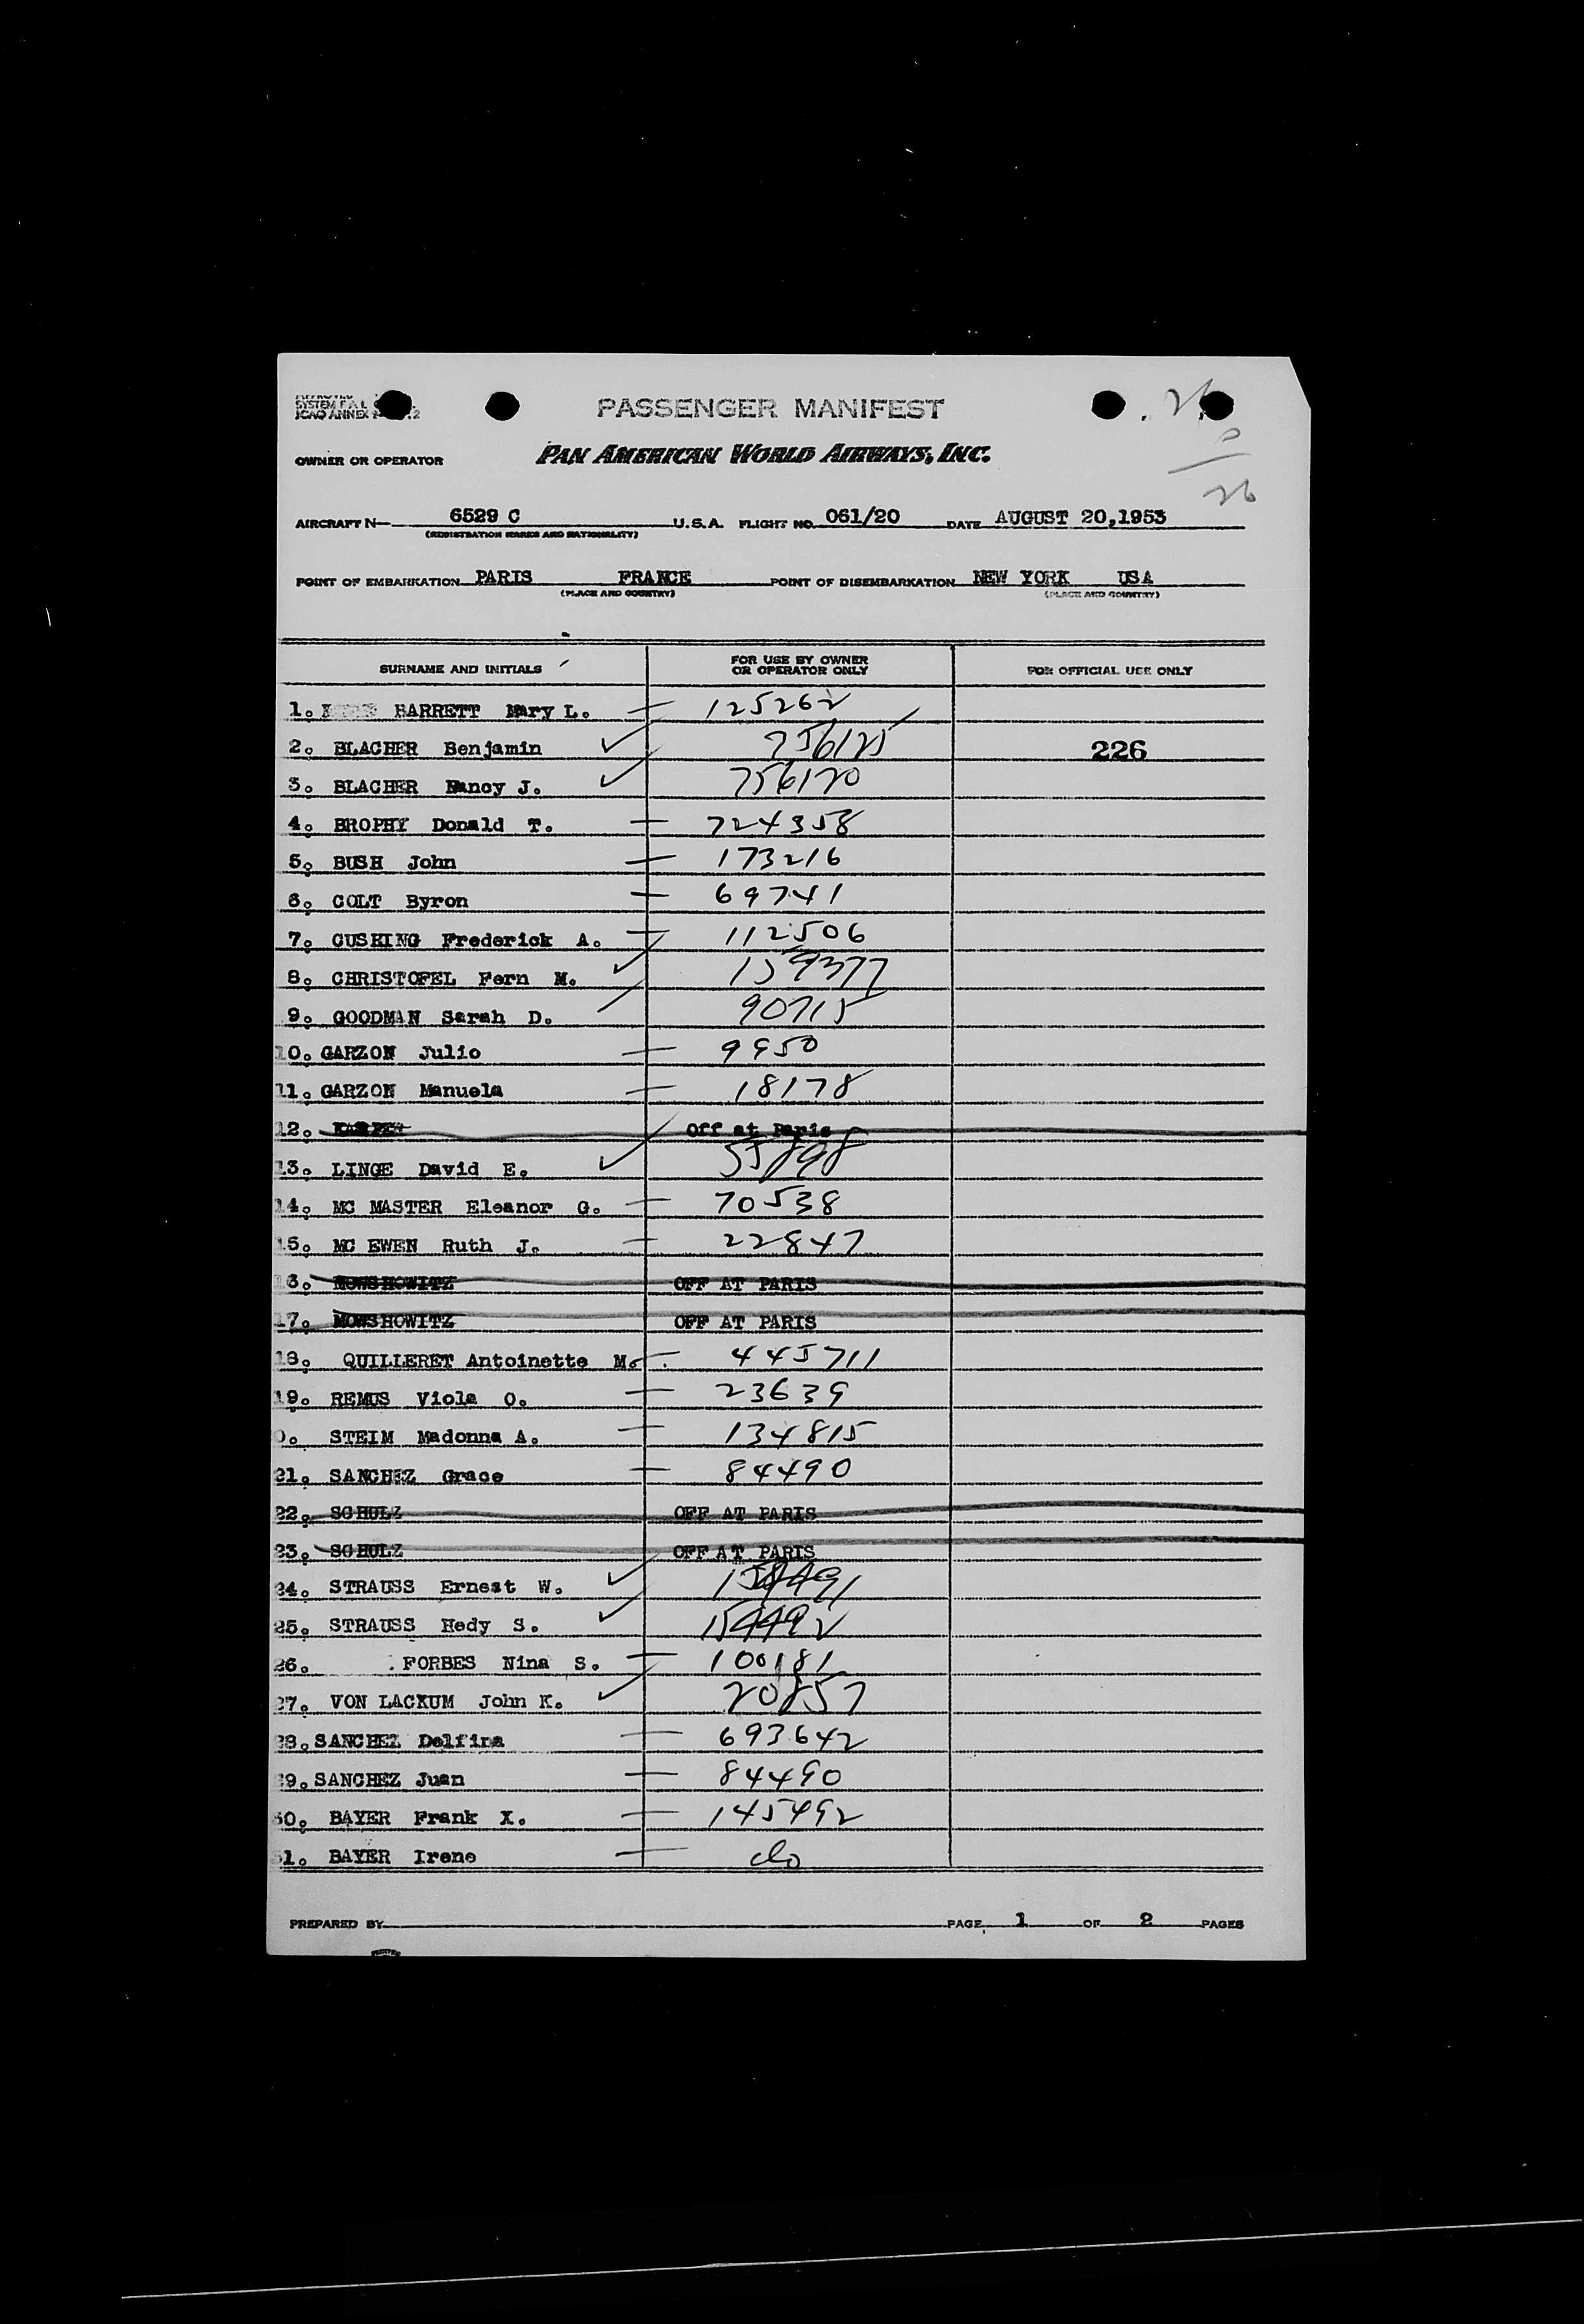 SYSTEM F.A.L
ICAO ANNEX
PASSENGER MANIFEST
26
0
26
OWNER OR OPERATOR PAN AMERICAN WORLD AIRWAYS, INC.
AIRCRAFT N 6529 C U.S.A. FLIGHT NO. 061/20 DATE AUGUST 20,1953
(REGISTRATION MARKS AND NATIONALITY)
POINT OF EMBARKATION PARIS FRANCE POINT OF DISEMBARKATION NEW YORK USA
(PLACE AND COUNTRY) (PLACE AND COUNTRY)
SURNAME AND INITIALS FOR USE BY OWNER OR OPERATOR ONLY FOR OFFICIAL USE ONLY
1. BARRETT Mary L. 125262
2. BLACHER Benjamin 756125 226
3. BLACHER Nancy J. 756120
4. BROPHY Donald T. 724358
5. BUSH John 173216
6. COLT Byron 69741
7. CUSHING Frederick A. 112506
8. CHRISTOFEL Fern M. 159377
9. GOODMAN Sarah D. 90715
10. GARZON Julio 9950
11. GARZON Manuela 18178
12. Off at Paris
13. LINGE David E. 55898
14. MC MASTER Eleanor G. 70538
15. MC EWEN Ruth J. 22847
16. MOWSHOWITZ OFF AT PARIS
17. MOWSHOWITZ OFF AT PARIS
18. QUILLERET Antoinette M. 445711
19. REMUS Viola O. 23639
0. STEIM Madonna A. 134815
21. SANCHEZ Grace 84490
22. SCHULZ OFF AT PARIS
23. SCHULZ OFF AT PARIS
24. STRAUSS Ernest W.
25. STRAUSS Hedy S. 154492
26. FORBES Nina S. 100181
27. VON LACKUM John K. 20857
28. SANCHEZ Delfina 693642
29. SANCHEZ Juan 84490
30. BAYER Frank X. 145492
31. BAYER Irene do
PREPARED BY PAGE 1 OF 2 PAGES